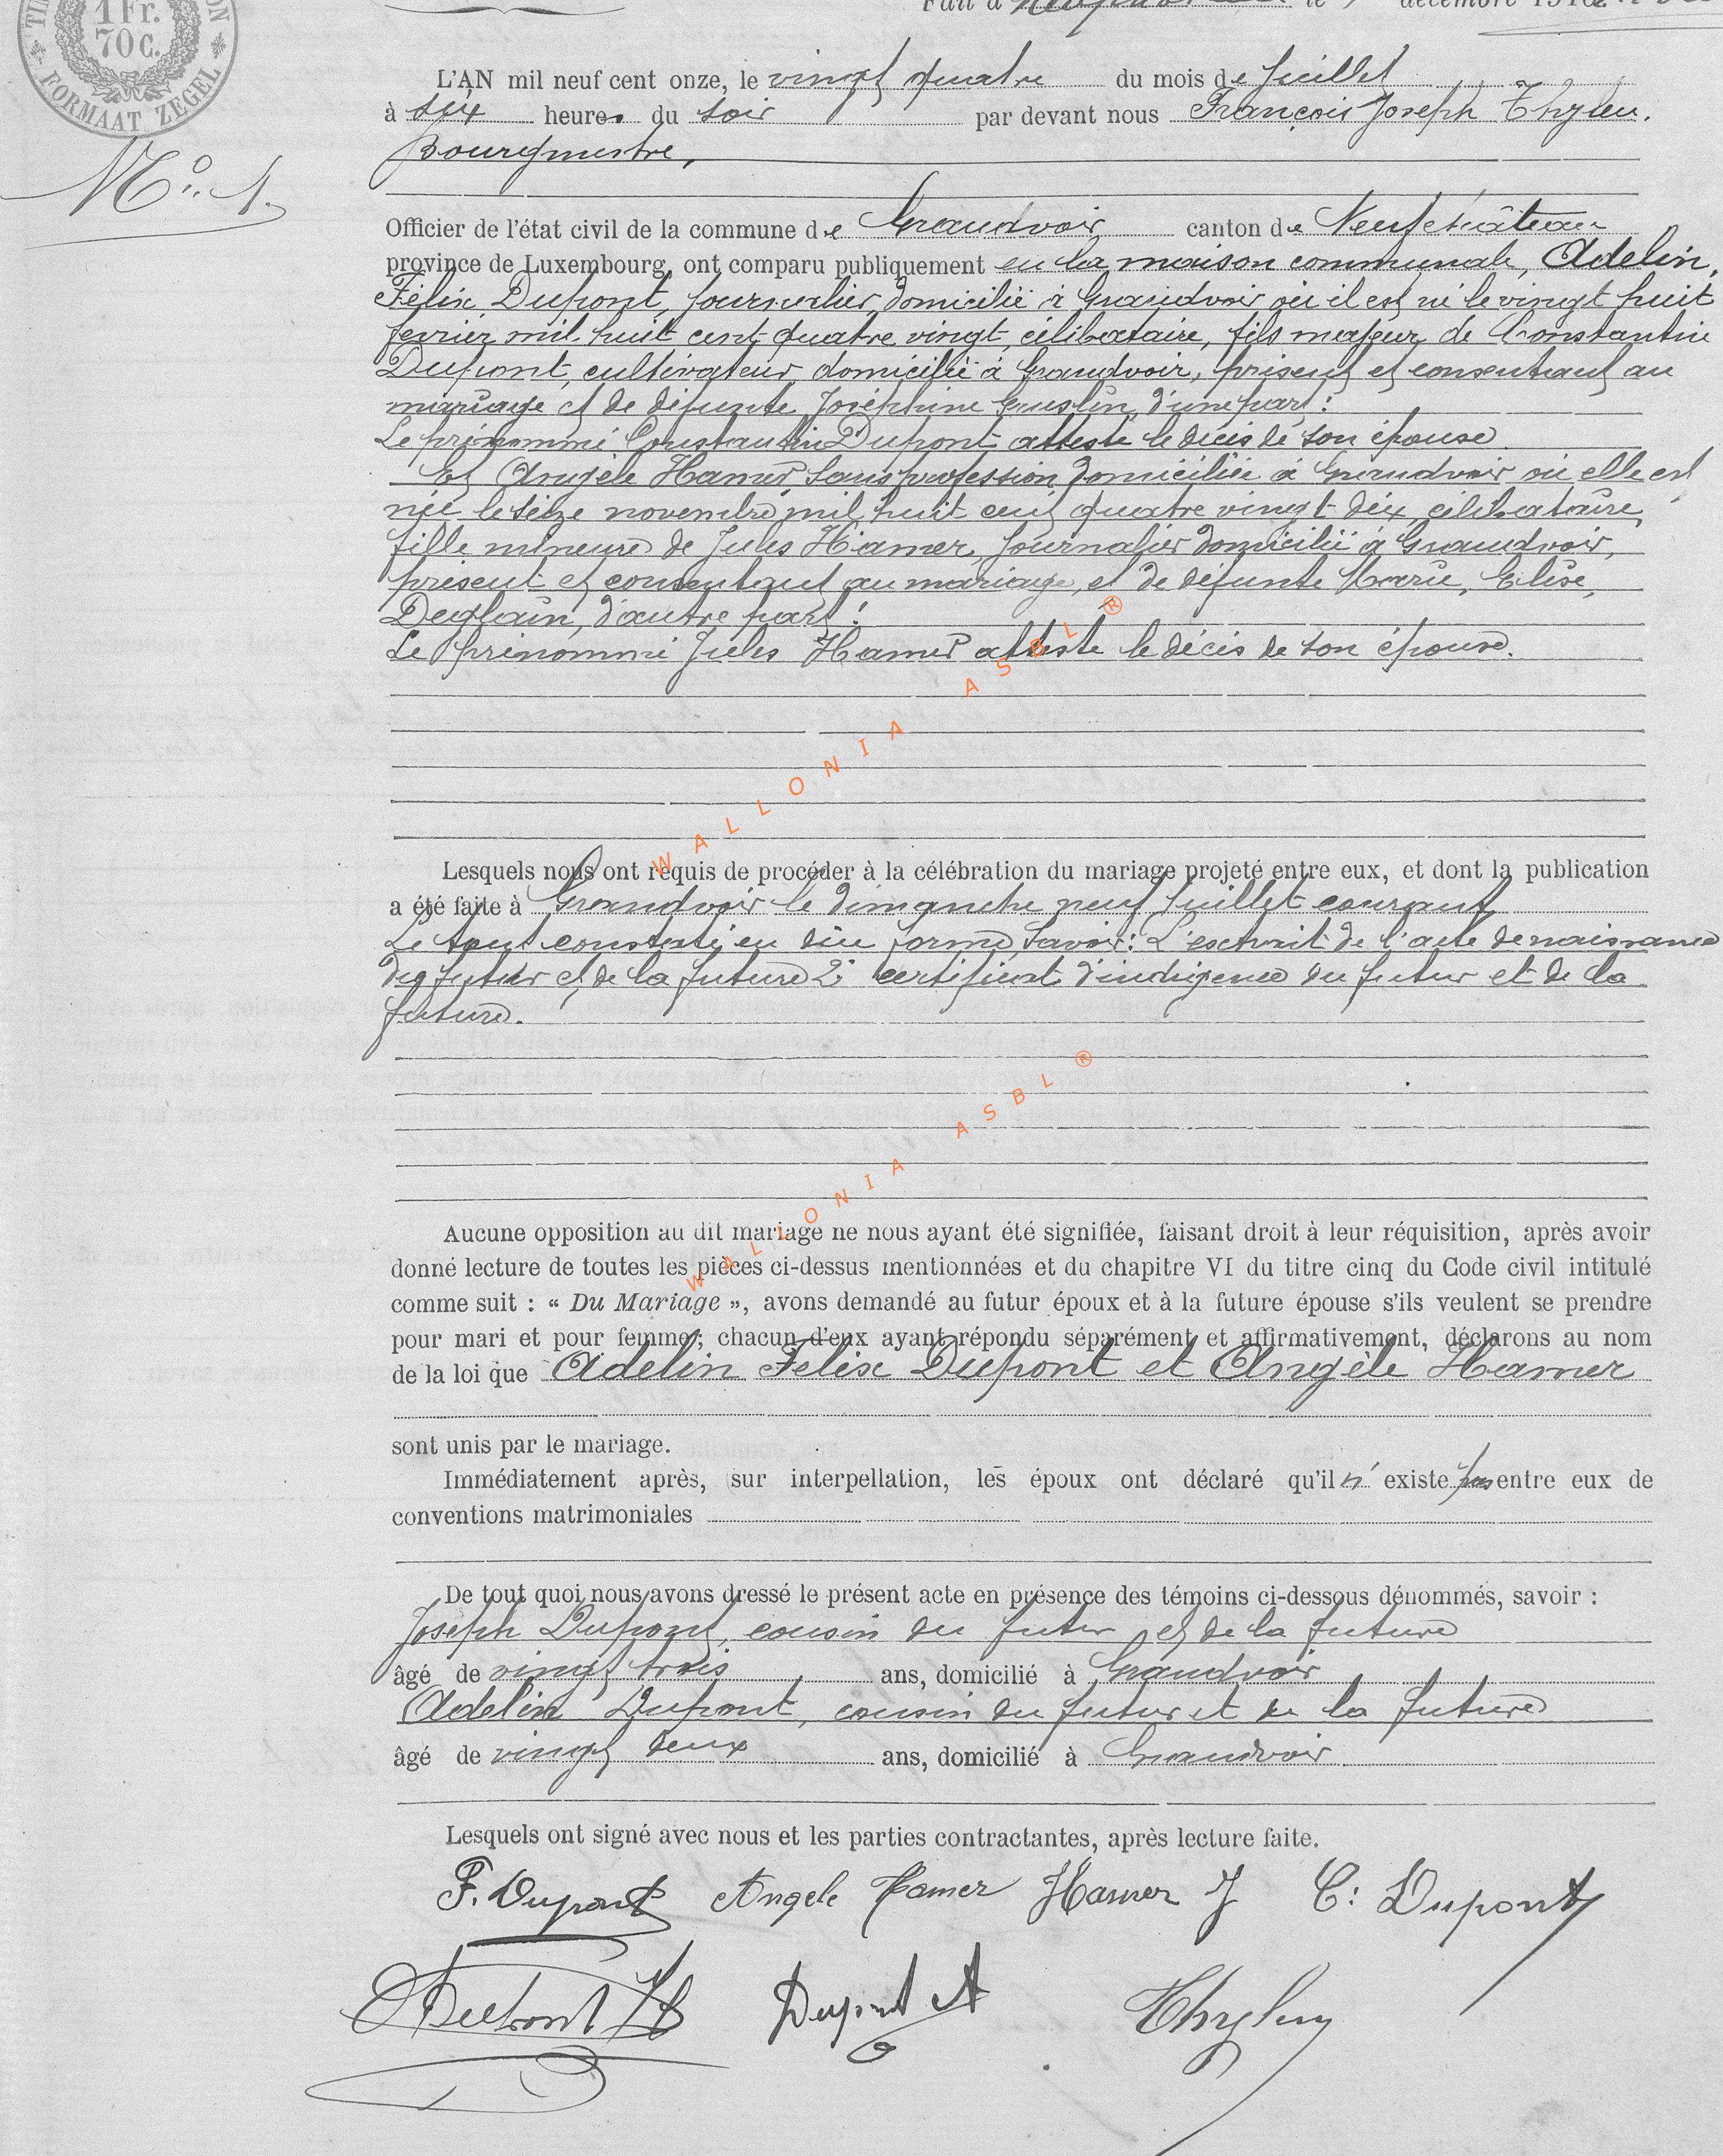 1 Fr.
70 C.
FORMAAT ZEGEL
Fait à le décembre 191
L'AN mil neuf cent onze, le vingt quatre du mois de Juillet
à six heures du soir par devant nous François Joseph
Bourgmestre,
No. 1.
Officier de l'état civil de la commune de Grandvoir canton de Neufchâteau
province de Luxembourg, ont comparu publiquement en la maison communale, Adelin,
Félix Dupont, journalier domicilié à Grandvoir où il est né le vingt huit
fevrier mil huit cent quatre vingt, célibataire, fils majeur de Constantin
Dupont, cultivateur domicilié à Grandvoir, présent et consentant au
mariage et de défunte Joséphine d'une part:
Le prénommé Constantin Dupont atteste le décès de son épouse
Et Angèle Hamer sans profession domiciliée à Grandvoir où elle est
née le seize novembre mil huit cent quatre vingt dix, célibataire,
fille mineure de Jules Hamer, journalier domicilié à Grandvoir,
présent et consentant au mariage, et de défunte Marie, Elise,
d'autre part:
Le prénommé Jules Hamer atteste le décès de son épouse.
WALLONIA ASBL ®
Lesquels nous ont requis de procéder à la célébration du mariage projeté entre eux, et dont la publication
a été faite à Grandvoir le dimanche neuf Juillet courant
Le tout constaté en due forme, savoir: L'extrait de l'acte de naissance
du futur et de la future 2° certificat d'indigence du futur et de la
future.
WALLONIA ASBL ®
Aucune opposition au dit mariage ne nous ayant été signifiée, faisant droit à leur réquisition, après avoir
donné lecture de toutes les pièces ci-dessus mentionnées et du chapitre VI du titre cinq du Code civil intitulé
comme suit : « Du Mariage », avons demandé au futur époux et à la future épouse s'ils veulent se prendre
pour mari et pour femme; chacun d'eux ayant répondu séparément et affirmativement, déclarons au nom
de la loi que Adelin Felix Dupont et Angèle Hamer
sont unis par le mariage.
Immédiatement après, sur interpellation, les époux ont déclaré qu'il n' existe pas entre eux de
conventions matrimoniales
De tout quoi nous avons dressé le présent acte en présence des témoins ci-dessous dénommés, savoir :
Joseph Dupont, cousin du futur et de la future
âgé de vingt trois ans, domicilié à Grandvoir
Adelin Dupont, cousin du futur et de la future
âgé de vingt deux ans, domicilié à Grandvoir
Lesquels ont signé avec nous et les parties contractantes, après lecture faite.
F. Dupont Angele Hamer Hamer J C: Dupont
Dupont Dupont A